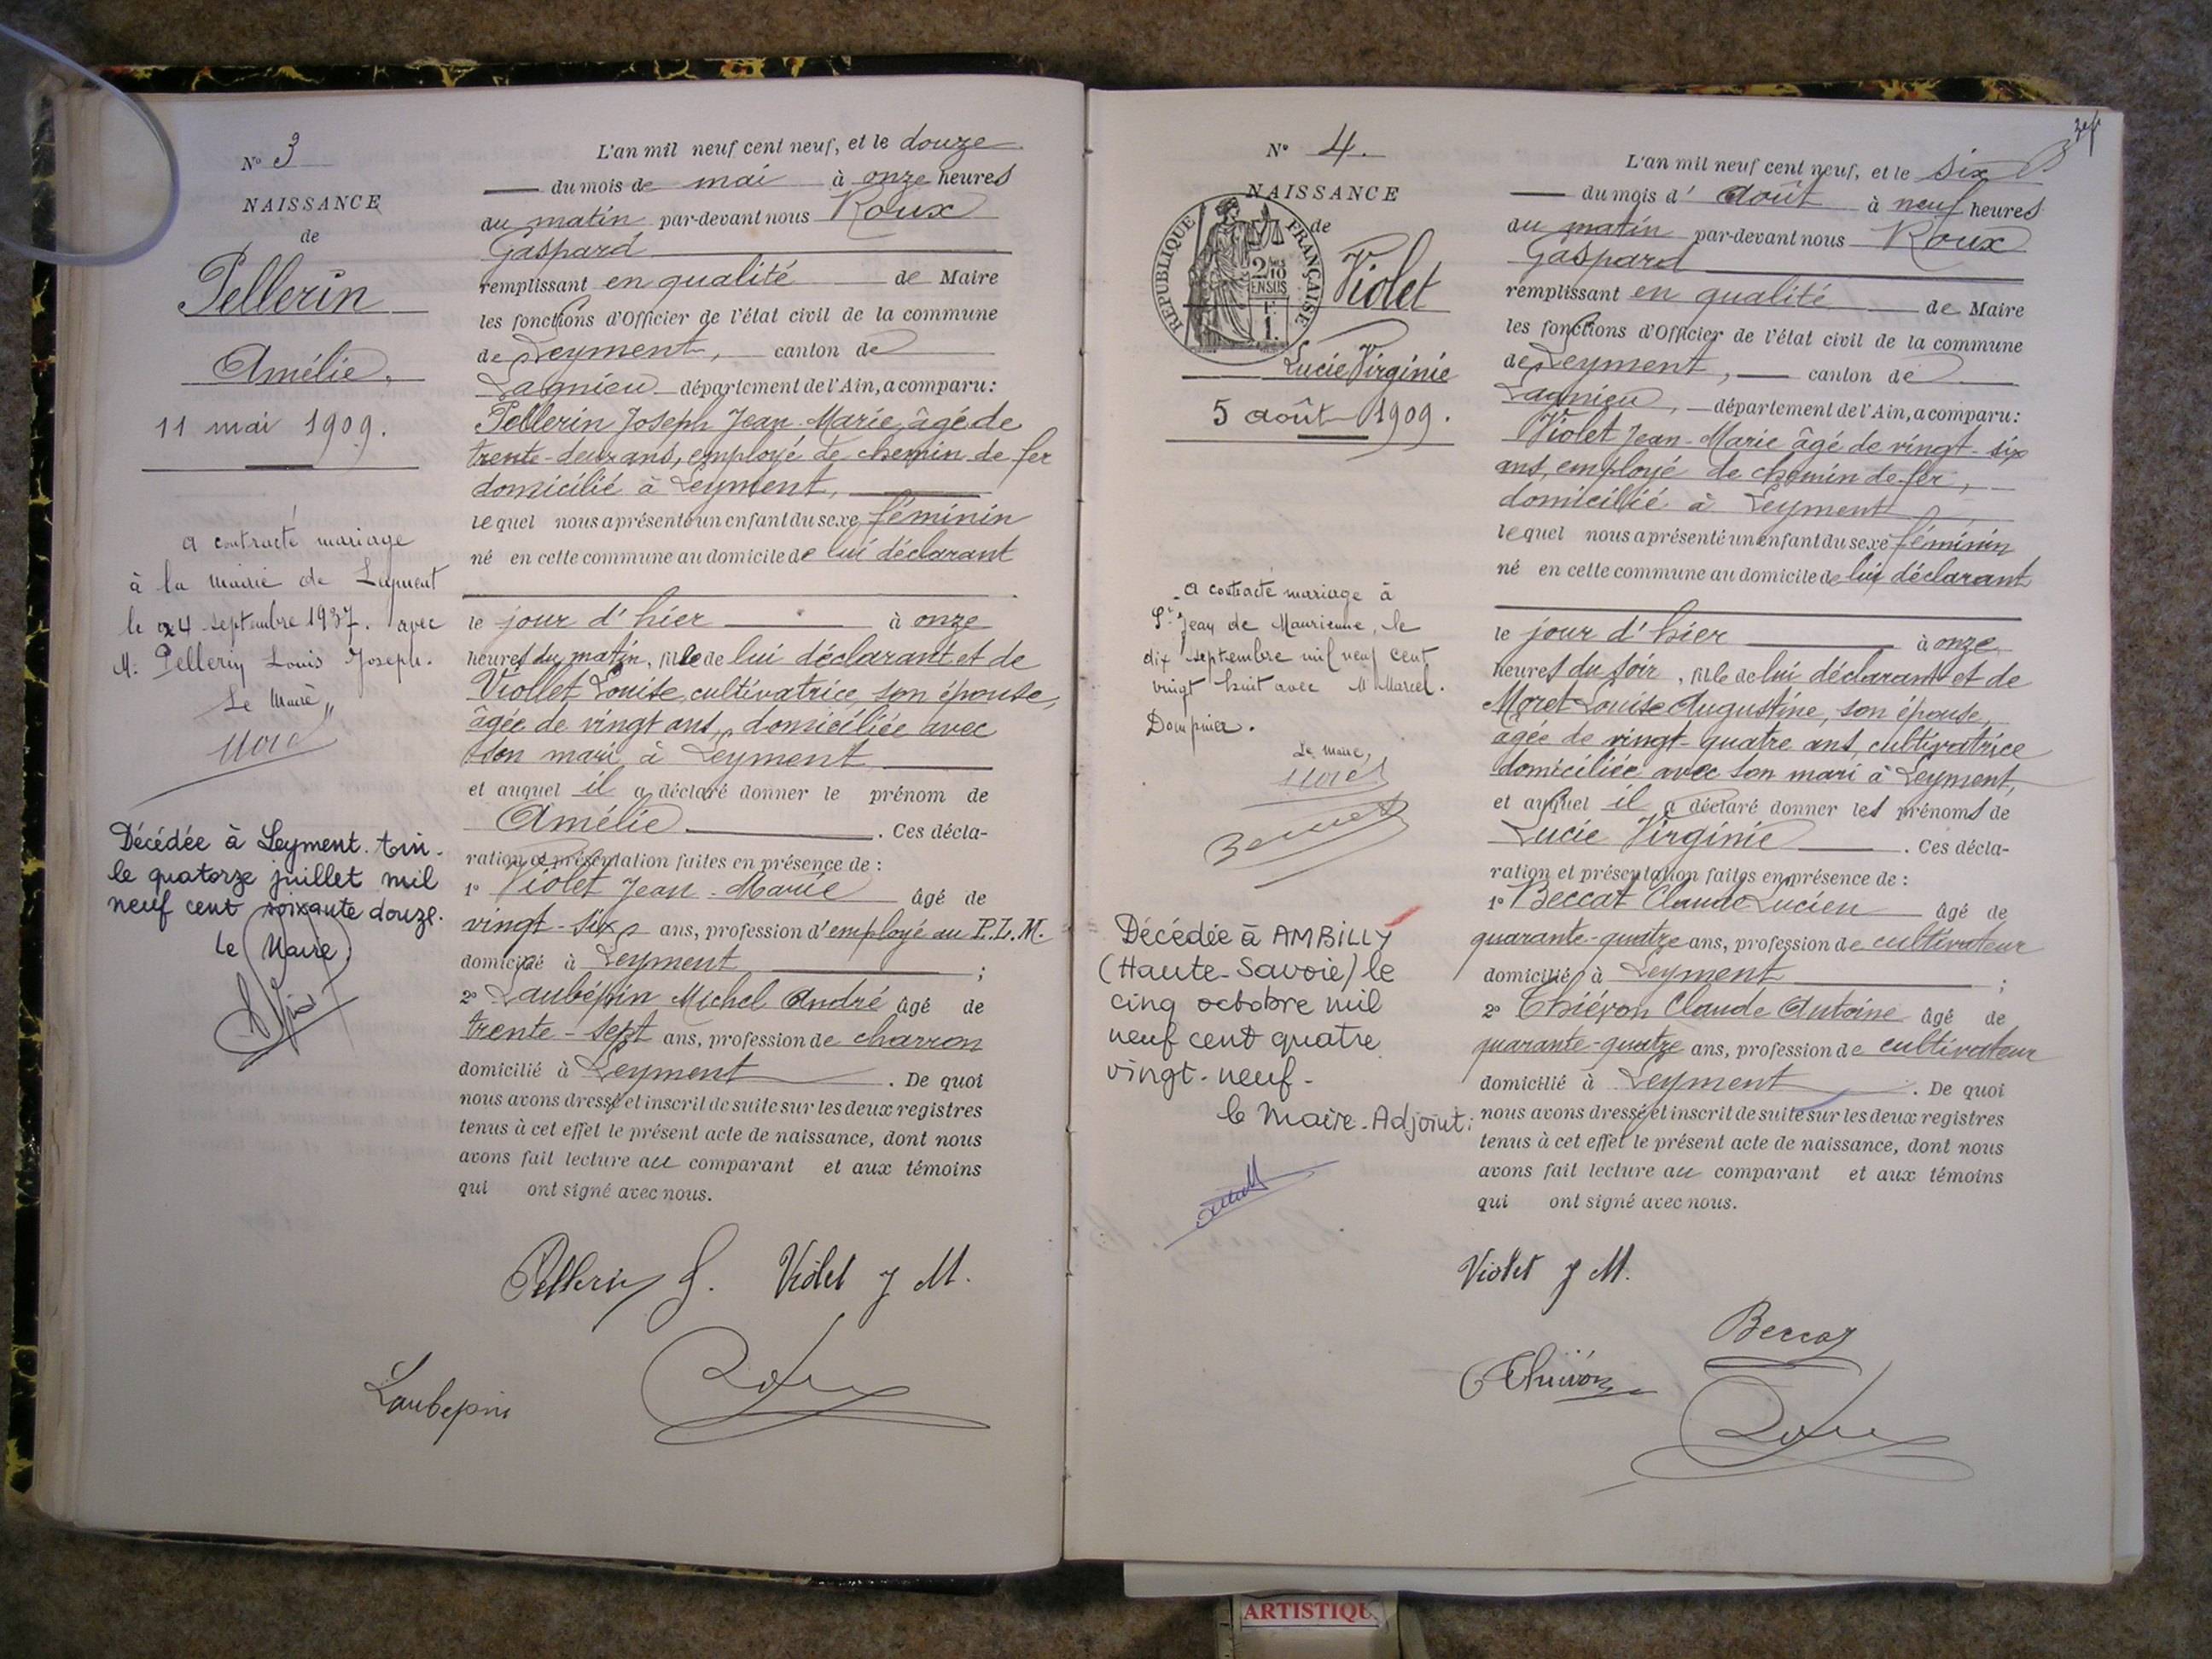 N° 3
NAISSANCE
de
Pellerin
Amélie.
11 mai 1909.
a contracté mariage
à la mairie de Leyment
le 24 septembre 1937. avec
M. Pellerin Louis Joseph.
Le Maire,
Décédée à Leyment. Ain.
le quatorze juillet mil
neuf cent soixante douze.
le Maire
L'an mil neuf cent neuf, et le douze
du mois de mai à onze heures
du matin par-devant nous Roux
Gaspard
remplissant en qualité de Maire
les fonctions d'Officier de l'état civil de la commune
de Leyment, canton de
Lagnieu département de l'Ain, a comparu:
Pellerin Joseph Jean-Marie, âgé de
trente-deux ans, employé de chemin de fer
domicilié à Leyment,
lequel nous a présenté un enfant du sexe féminin
né en cette commune au domicile de lui déclarant
le jour d'hier à onze
heures du matin, fille de lui déclarant et de
Viollet Louise, cultivatrice, son épouse,
âgée de vingt ans, domiciliée avec
son mari à Leyment
et auquel il a déclaré donner le prénom de
Amélie. Ces décla-
ration et présentation faites en présence de :
1° Violet Jean-Marie âgé de
vingt-six ans, profession d'employé au P.L.M.
domicilié à Leyment ;
2° Laubépin Michel André âgé de
trente-sept ans, profession de charron
domicilié à Leyment. De quoi
nous avons dressé et inscrit de suite sur les deux registres
tenus à cet effet le présent acte de naissance, dont nous
avons fait lecture au comparant et aux témoins
qui ont signé avec nous.
Pellerin J. Violet J M.
Laubepin Roux
N° 4.
NAISSANCE
de
RÉPUBLIQUE FRANÇAISE
2/10
EN SUS
1 F.
Violet
Lucie Virginie
5 août 1909.
a contracté mariage à
St Jean de Maurienne, le
dix septembre mil neuf cent
vingt huit avec M Marcel.
Dompnier.
Le Maire,
Décédée à AMBILLY
(Haute-Savoie) le
cinq octobre mil
neuf cent quatre
vingt-neuf-
le Maire-Adjoint:
L'an mil neuf cent neuf, et le six
du mois d'août à neuf heures
du matin par-devant nous Roux
Gaspard
remplissant en qualité de Maire
les fonctions d'Officier de l'état civil de la commune
de Leyment, canton de
Lagnieu, département de l'Ain, a comparu:
Violet Jean-Marie âgé de vingt-six
ans, employé de chemin de fer,
domicilié à Leyment
lequel nous a présenté un enfant du sexe féminin
né en cette commune au domicile de lui déclarant
le jour d'hier à onze
heures du soir, fille de lui déclarant et de
Moret Louise Augustine, son épouse,
âgée de vingt-quatre ans, cultivatrice
domiciliée avec son mari à Leyment,
et auquel il a déclaré donner les prénoms de
Lucie Virginie. Ces décla-
ration et présentation faites en présence de :
1° Beccat Claude Lucien âgé de
quarante-quatre ans, profession de cultivateur
domicilié à Leyment ;
2° Thiévon Claude Antoine âgé de
quarante-quatre ans, profession de cultivateur
domicilié à Leyment. De quoi
nous avons dressé et inscrit de suite sur les deux registres
tenus à cet effet le présent acte de naissance, dont nous
avons fait lecture au comparant et aux témoins
qui ont signé avec nous.
Violet J M.
Beccat
Thiévon
Roux
ARTISTIQU